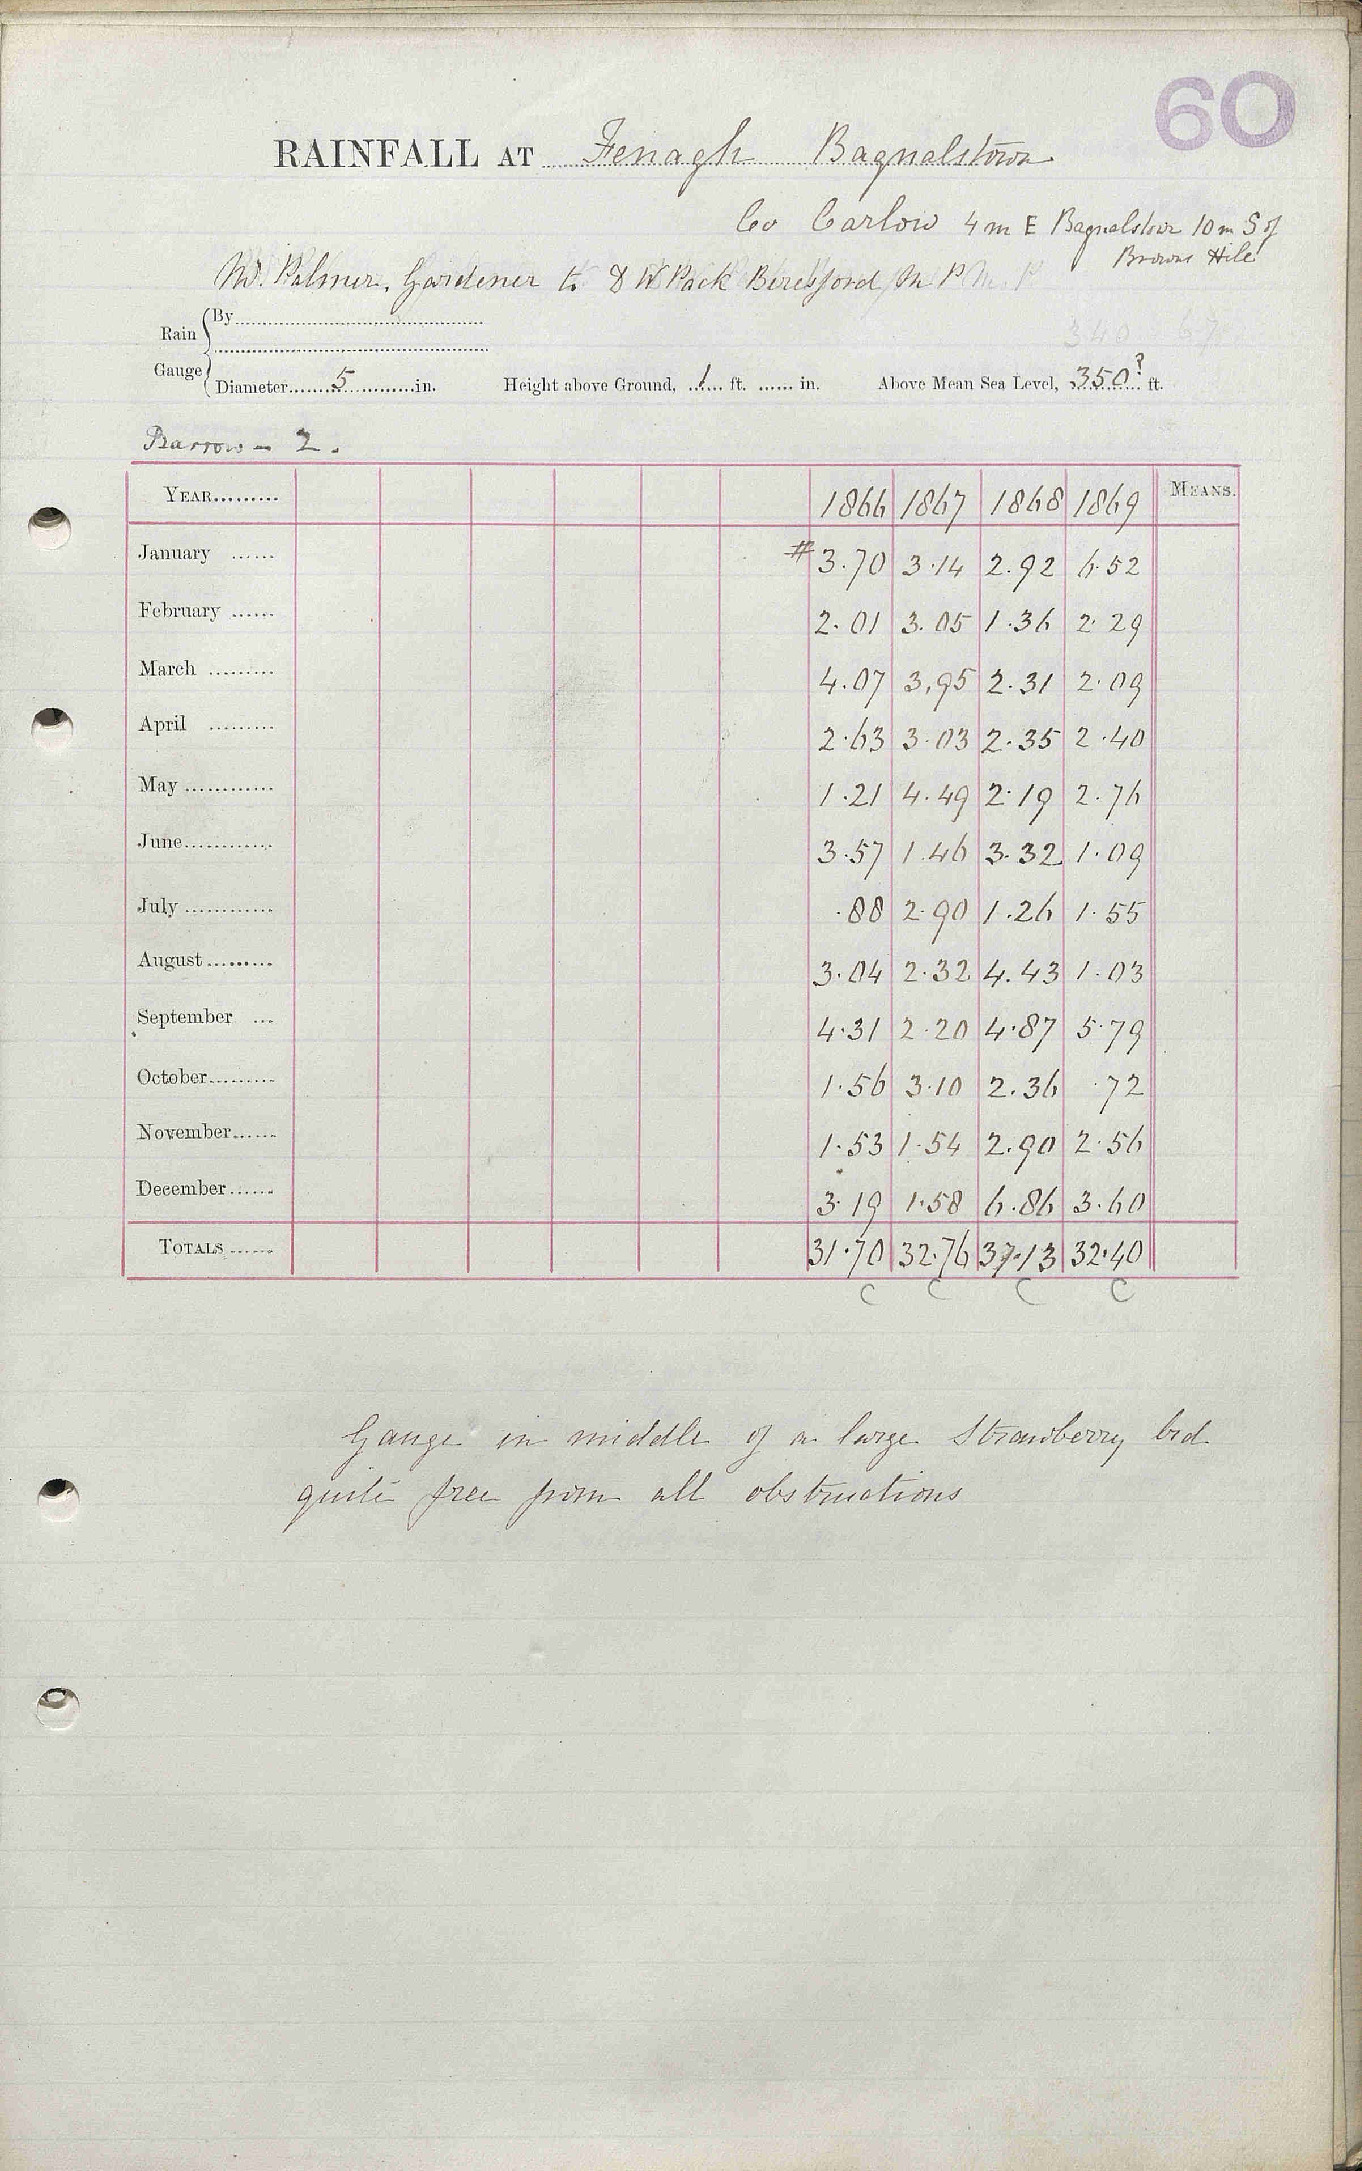 60
RAINFALL AT Fenagh Bagnalstown
Co Carlow 4 m E Bagnalstown 10 m S of
Browns Hill
W. Palmer, Gardener to D W Pack Beresford M P
340
Rain Gauge
By
Diameter 5 in. Height above Ground, 1 ft. in. Above Mean Sea Level, 350? ft.
Barrow - 2.
YEAR 1866 1867 1868 1869 MEANS.
January # 3.70 3.14 2.92 6.52
February 2.01 3.05 1.36 2.29
March 4.07 3.95 2.31 2.09
April 2.63 3.03 2.35 2.40
May 1.21 4.49 2.19 2.76
June 3.57 1.46 3.32 1.09
July .88 2.90 1.26 1.55
August 3.04 2.32 4.43 1.03
September 4.31 2.20 4.87 5.79
October 1.56 3.10 2.36 .72
November 1.53 1.54 2.90 2.56
December 3.19 1.58 6.86 3.60
TOTALS 31.70 32.76 37.13 32.40
C C C C
Gauge in middle of a large Strawberry bed
quite free from all obstructions